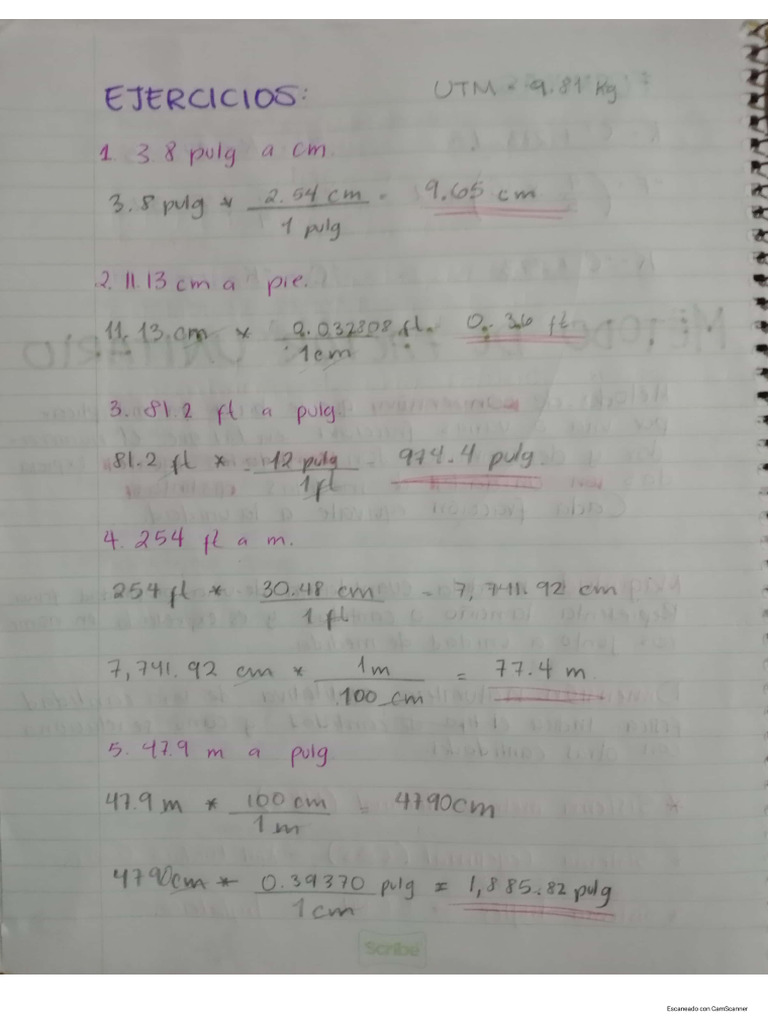 EJERCICIOS:
UTM = 9.81 kg
1. 3.8 pulg a cm
3.8 pulg * 2.54 cm = 9.65 cm
1 pulg
2. 11.13 cm a pie.
11.13 cm * 0.032808 ft. 0.36 ft
1cm
3. 81.2 ft a pulg
81.2 ft * 12 pulg 974.4 pulg.
1 ft
4. 254 ft a m.
254 ft * 30.48 cm = 7,741.92 cm
1 ft
7,741.92 cm * 1m = 77.4 m
100 cm
5. 47.9 m a pulg.
47.9 m * 100 cm = 4790cm
1 m
4790cm * 0.39370 pulg = 1,885.82 pulg
1 cm
Scribe
Escaneado con CamScanner